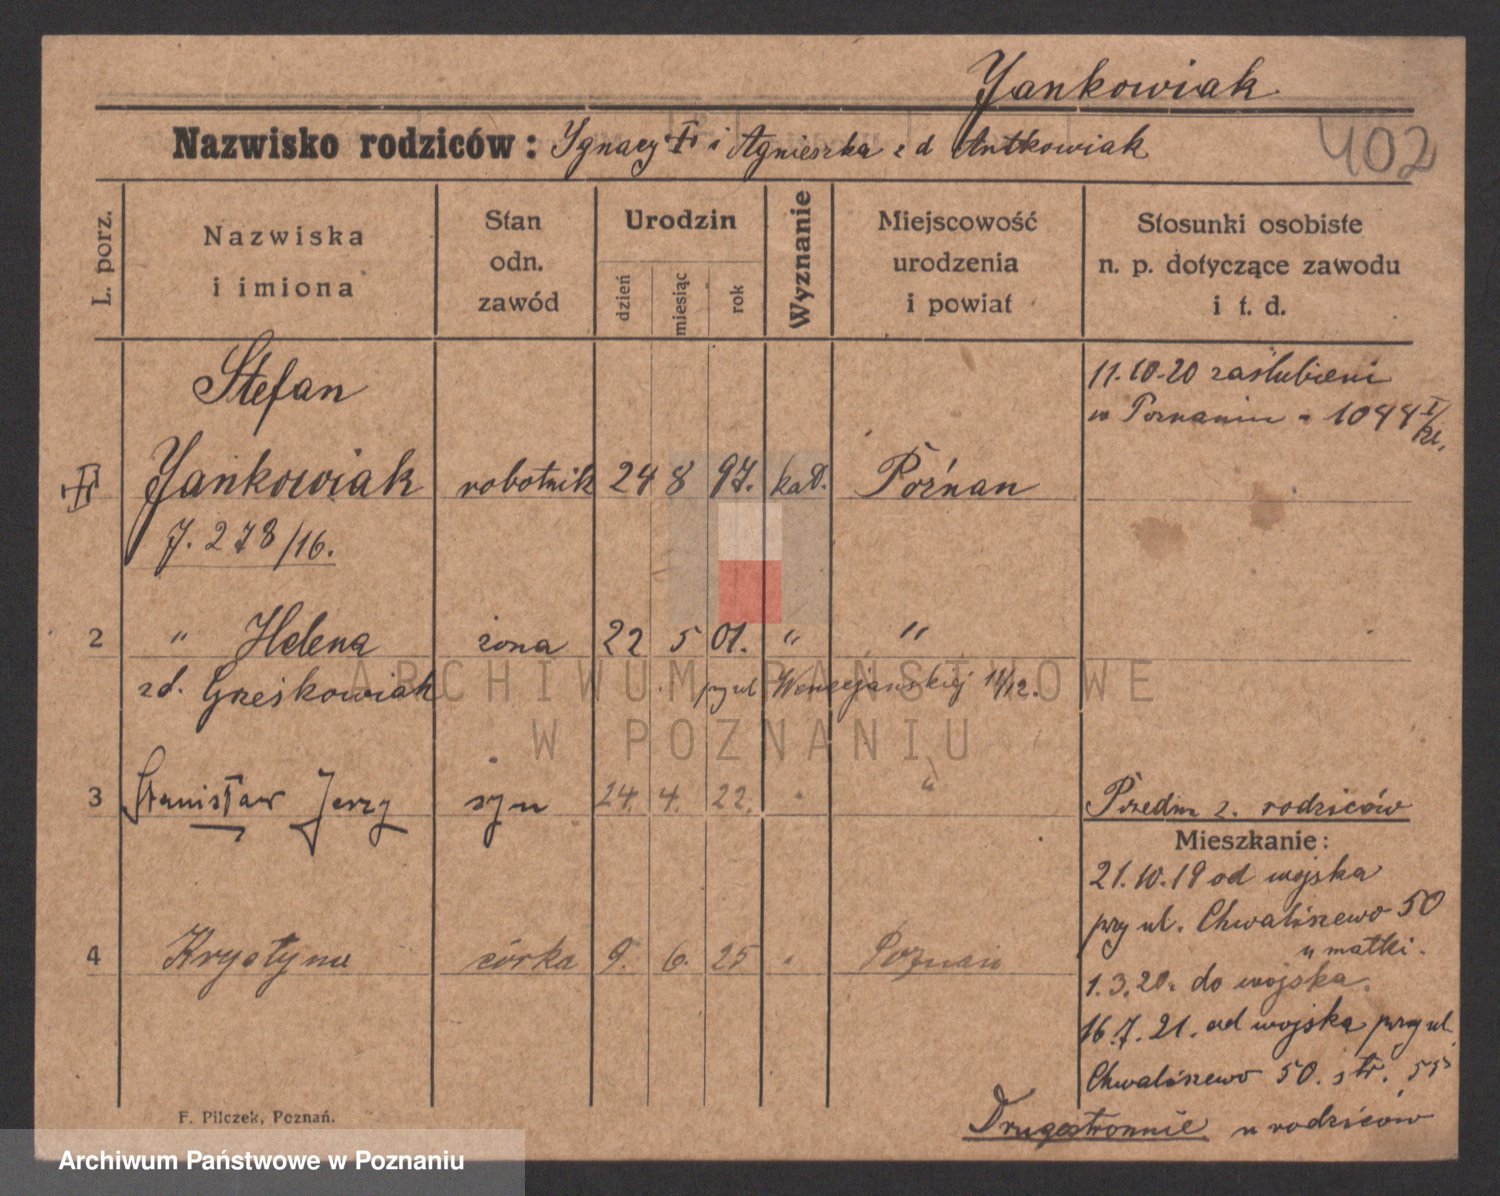 Yankowiak
402
Nazwisko rodziców: Ygnacy i Agnieszka z d Antkowiak
L. porz.
Nazwiska
i imiona
Stan
odn.
zawód
Urodzin
dzień
miesiąc
rok
Wyznanie
Miejscowość
urodzenia
i powiat
Stosunki osobiste
n. p. dotyczące zawodu
i t. d.
Stefan
Yankowiak robotnik 24 8 97. kat. Poznan
J. 278/16.
11.10.20 zaślubieni
w Poznaniu - 1044 I/21.
2 " Helena żona 22 5 01. " "
zd. Greśkowiak
przy ul Wenecjanskiej 11/12.
3 Stanisław Jerzy syn 24. 4. 22. "
Przedm z. rodziców
Mieszkanie:
21.10.19 od wojska
przy ul. Chwaliszewo 50
u matki.
4 Krystyna córka 9. 6. 25 Poznan
1.3.20. do wojska.
16.7.21. od wojska przy ul.
Chwaliszewo 50. str. 55
Drugostronnie u rodziców
F. Pilczek, Poznań.
ARCHIWUM PAŃSTWOWE
W POZNANIU
Archiwum Państwowe w Poznaniu